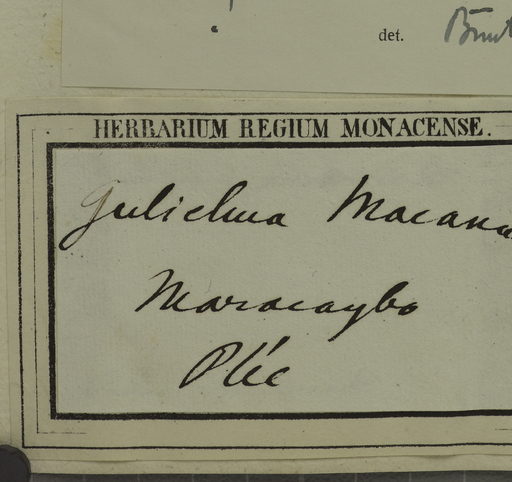 det.
HERBARIUM REGIUM MONACENSE.
Gulielma Macana
Maracaybo
Plée